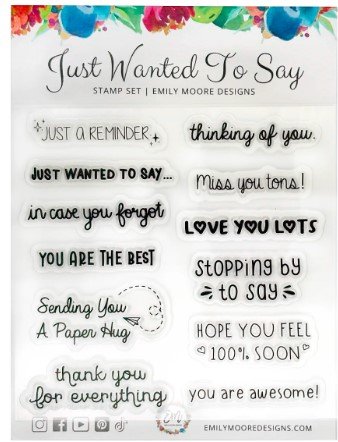 Just Wanted To Say
STAMP SET | EMILY MOORE DESIGNS
JUST A REMINDER
JUST WANTED TO SAY...
in case you forgot
YOU ARE THE BEST
Sending You
A Paper Hug
thank you
for everything
thinking of you.
Miss you tons!
LOVE YOU LOTS
STOPPING BY
to SAY
HOPE YOU FEEL
100% SOON
you are awesome!
EMILYMOOREDESIGNS.COM